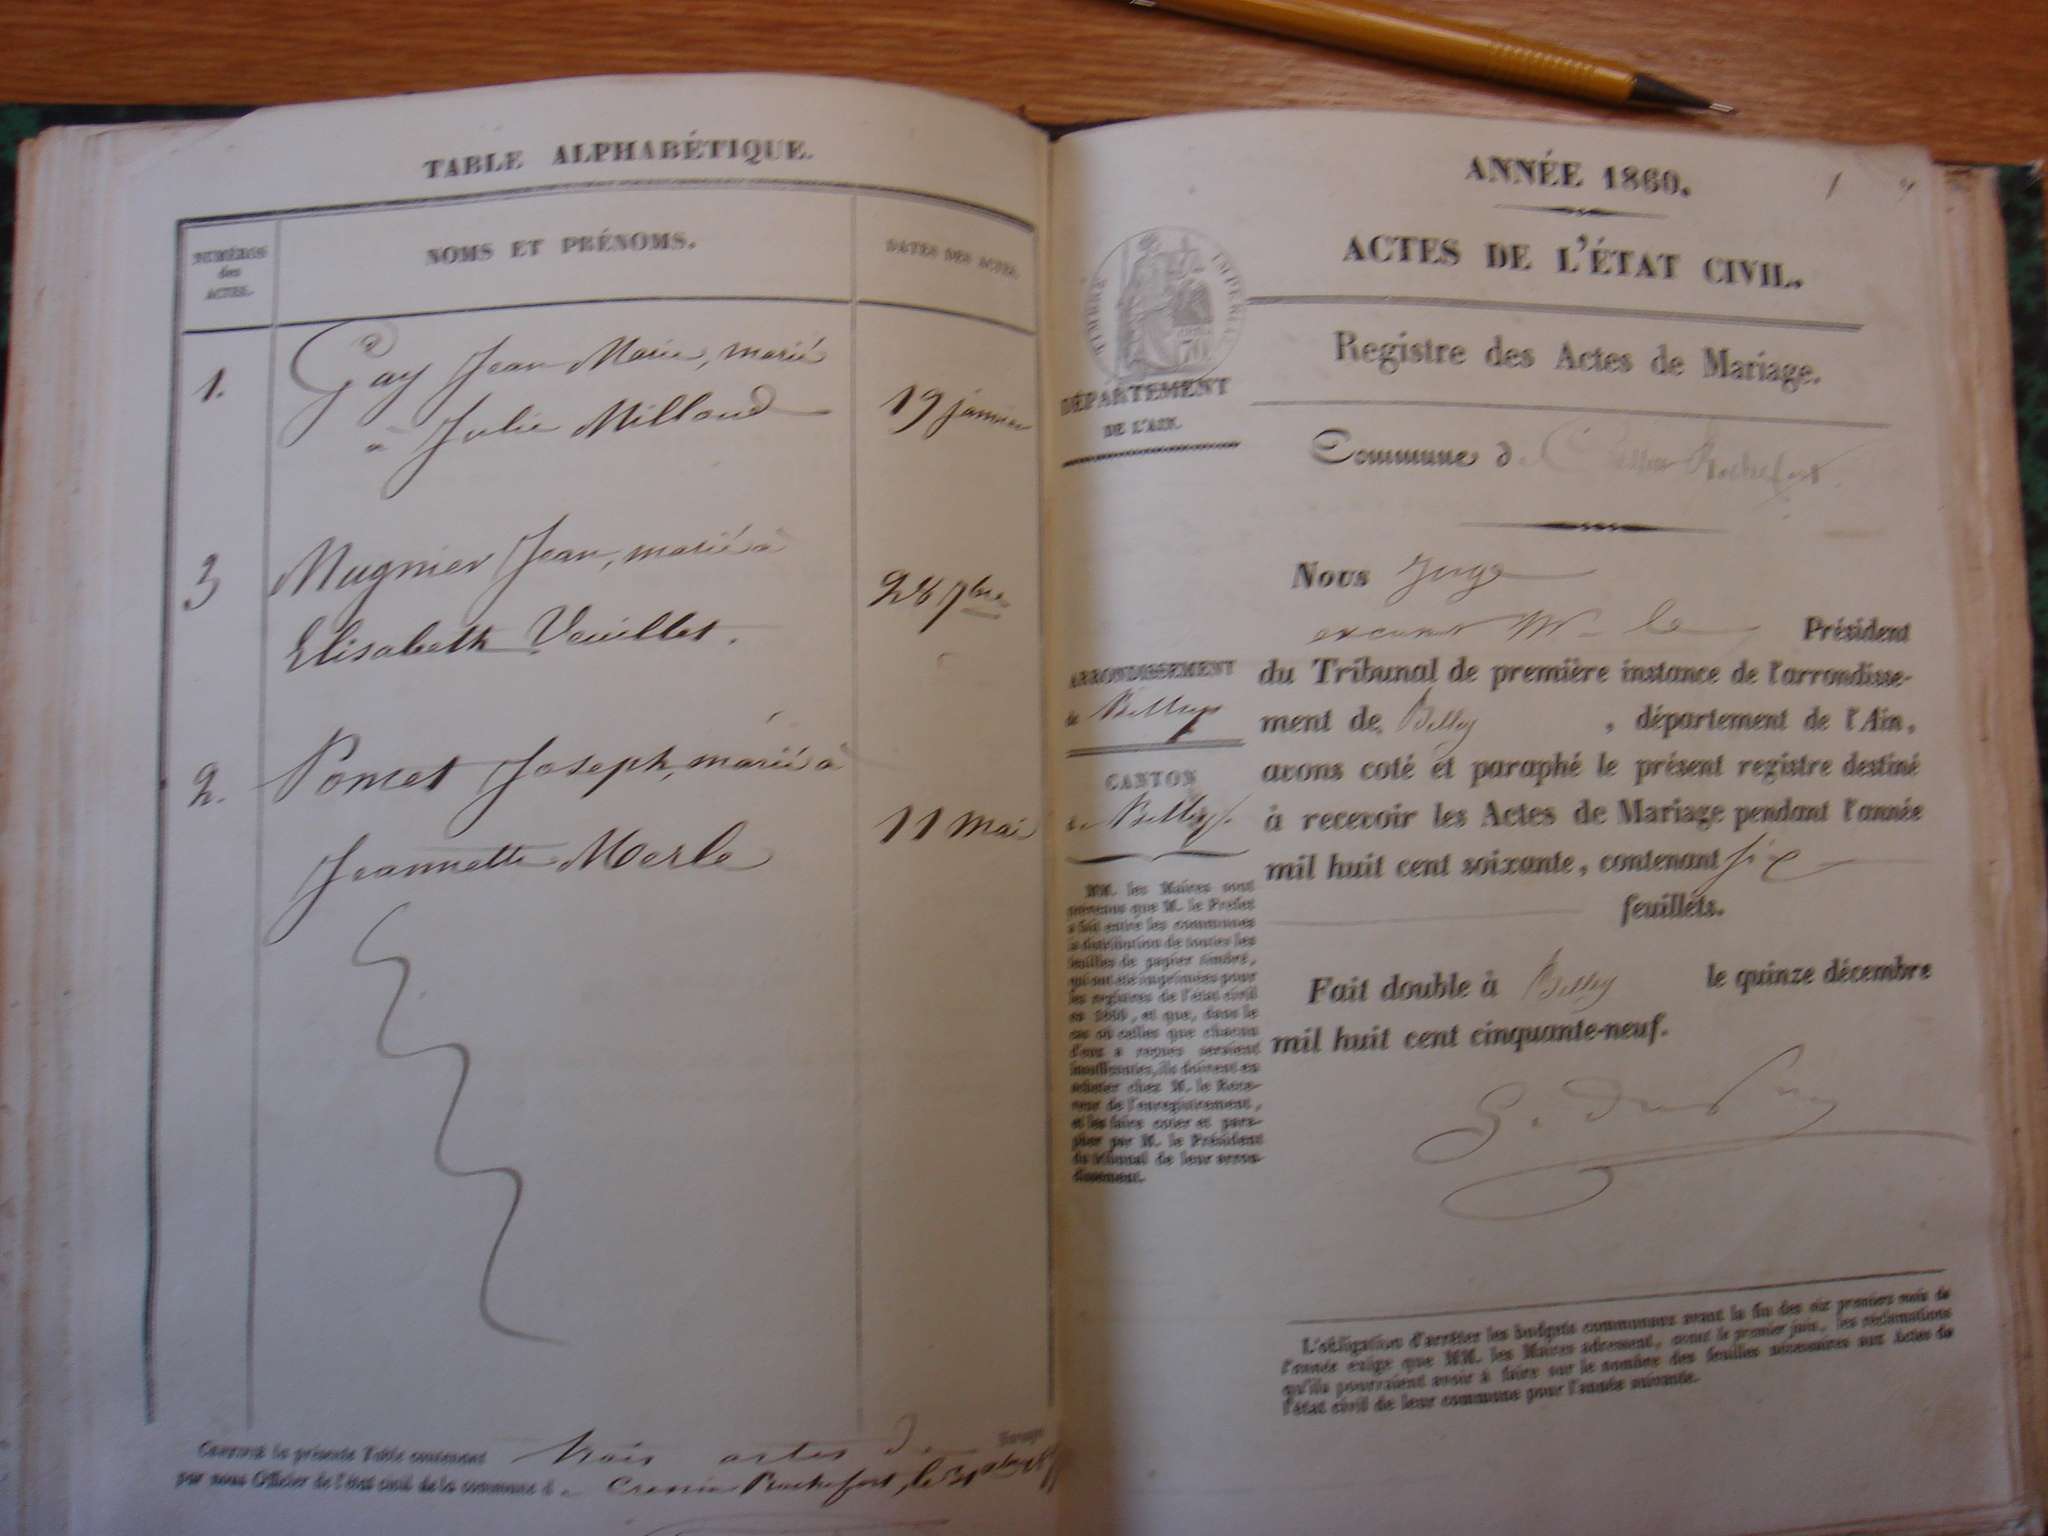 TABLE ALPHABÉTIQUE.
NUMÉROS
des
ACTES.
NOMS ET PRÉNOMS.
DATES DES ACTES.
1.
Gay Jean Marie, marié
à Julie Milloud
19 janvier
3
Mugnier Jean, marié à
Elisabeth Veuillet.
7bre
2.
Poncet Joseph, marié à
Jeannette Merle
11 mai
CERTIFIÉ la présente Table contenant trois actes d
par nous Officier de l'état civil de la commune d Cressin Rochefort, le 31
ANNÉE 1860.
1
ACTES DE L'ÉTAT CIVIL.
TIMBRE IMPÉRIAL
DÉPARTEMENT
DE L'AIN.
Registre des Actes de Mariage.
Commune de Cressin Rochefort
ARRONDISSEMENT
de Belley
CANTON
de Belley.
MM. les Maires sont
prévenus que M. le Préfet
a fait entre les communes
la distribution de toutes les
feuilles de papier timbré,
qui ont été imprimées pour
les registres de l'état civil
en 1860, et que, dans le
cas où celles que chacun
d'eux a reçues seraient
insuffisantes, ils doivent en
acheter chez M. le Rece-
veur de l'enregistrement,
et les faire coter et para-
pher par M. le Président
du tribunal de leur arron-
dissement.
Nous Juge
M. le Président
du Tribunal de première instance de l'arrondisse-
ment de Belley, département de l'Ain,
avons coté et paraphé le présent registre destiné
à recevoir les Actes de Mariage pendant l'année
mil huit cent soixante, contenant six
feuillets.
Fait double à Belley le quinze décembre
mil huit cent cinquante-neuf.
L'obligation d'arrêter les budgets communaux avant la fin des six premiers mois de
l'année exige que MM. les Maires adressent, avant le premier juin, les réclamations
qu'ils pourraient avoir à faire sur le nombre des feuilles nécessaires aux Actes de
l'état civil de leur commune pour l'année suivante.